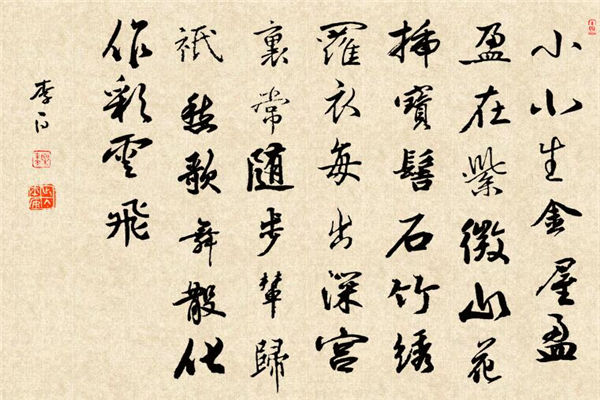 小小生金屋盈
盈在紫微山花
插寶髻石竹綉
羅衣每出深宮
裏常随步輦歸
祇愁歌舞散化
作彩雲飛
李白